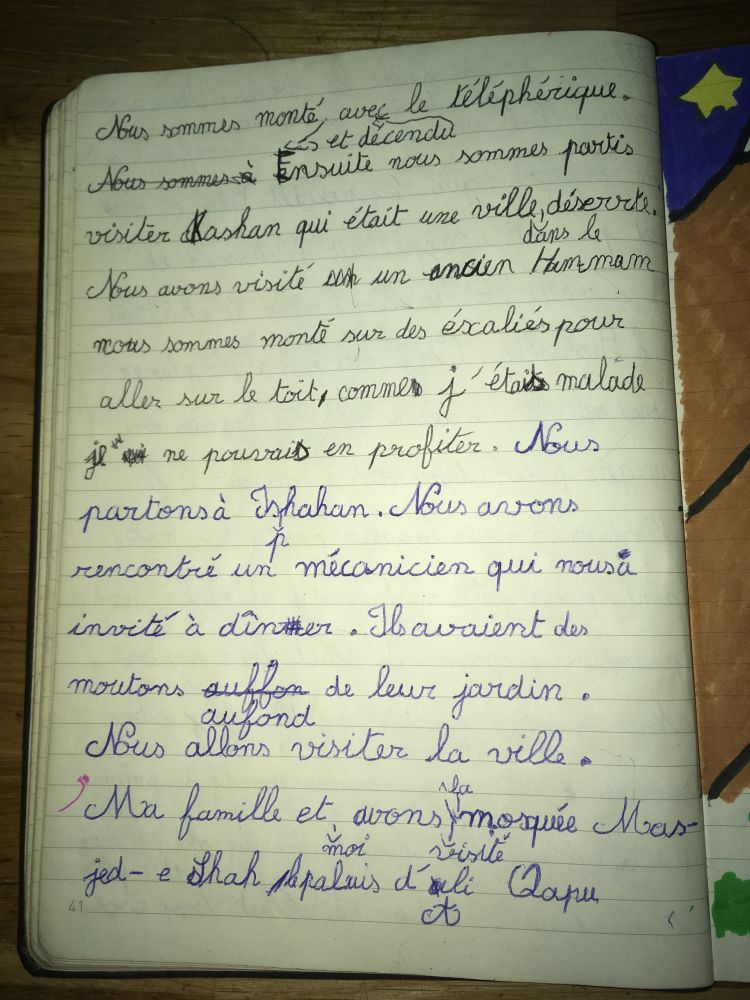 Nous sommes monté avec le téléphérique.
et décendu
Nous sommes à Ensuite nous sommes partis
visiter Kashan qui était une ville déserrte.
dans le
Nous avons visité un ancien Hammam
nous sommes monté sur des éscaliés pour
aller sur le toit, comme j'étais malade
je ne pouvrais en profiter. Nous
partons à Ishahan. Nous avons
p
rencontré un mécanicien qui nous à
invité à dîner. Ils avaient des
moutons auffon de leur jardin.
aufond
Nous allons visiter la ville.
la
Ma famille et avons mosquée Mas-
moi visité
jed-e Shah, le palais d'ali Qapu
et
41